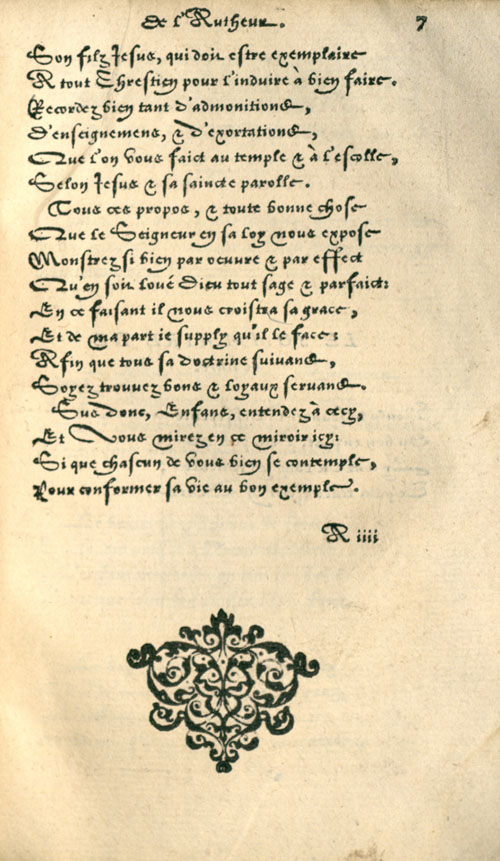 de l'Autheur. 7
Son filz Jesus, qui doit estre exemplaire
A tout Chrestien pour l'induire à bien faire.
Recordez bien tant d'admonitions,
D'enseignemens, & d'exortations,
Que l'on vous faict au temple & à l'escolle,
Selon Jesus & sa saincte parolle.
Tous ces propos, & toute bonne chose
Que le Seigneur en sa loy nous expose
Monstrez si bien par oeuvre & par effect
Qu'en soit loué Dieu tout sage & parfaict:
En ce faisant il nous croistra sa grace,
Et de ma part ie supply qu'il le face:
Afin que tous sa doctrine suivans,
Soyez trouvez bons & loyaux servans.
Sus donc, Enfans, entendez à cecy,
Et Vous mirez en ce miroir icy:
Si que chascun de vous bien se contemple,
Pour conformer sa vie au bon exemple.
A iiii